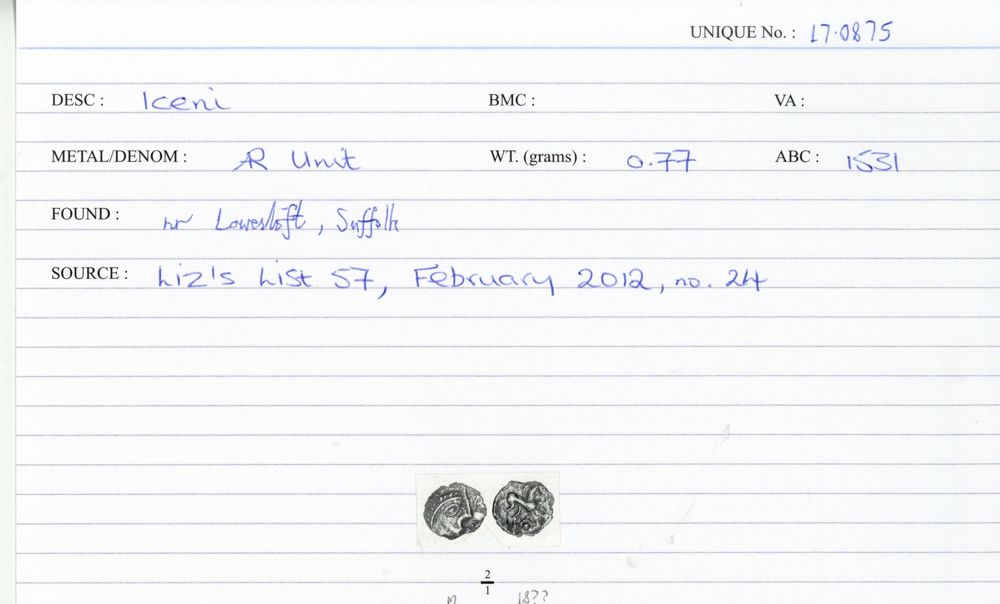 UNIQUE No. : 17.0875
DESC : Iceni BMC : VA :
METAL/DENOM : AR Unit WT. (grams) : 0.77 ABC : 1531
FOUND : nr Lowestoft, Suffolk
SOURCE : Liz's List 57, February 2012, no. 24
2
1
18??